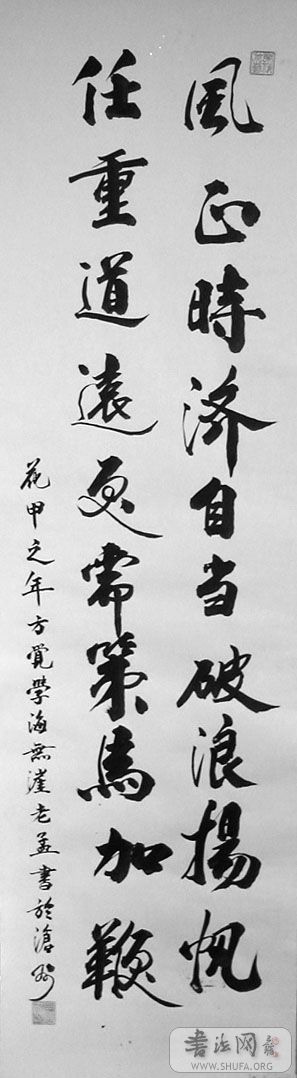 風正時济自当破浪揚帆
任重道遠更需策馬加鞭
花甲之年方覺學海無漄老孟書於滄州
書法网
WWW.SHUFA.ORG